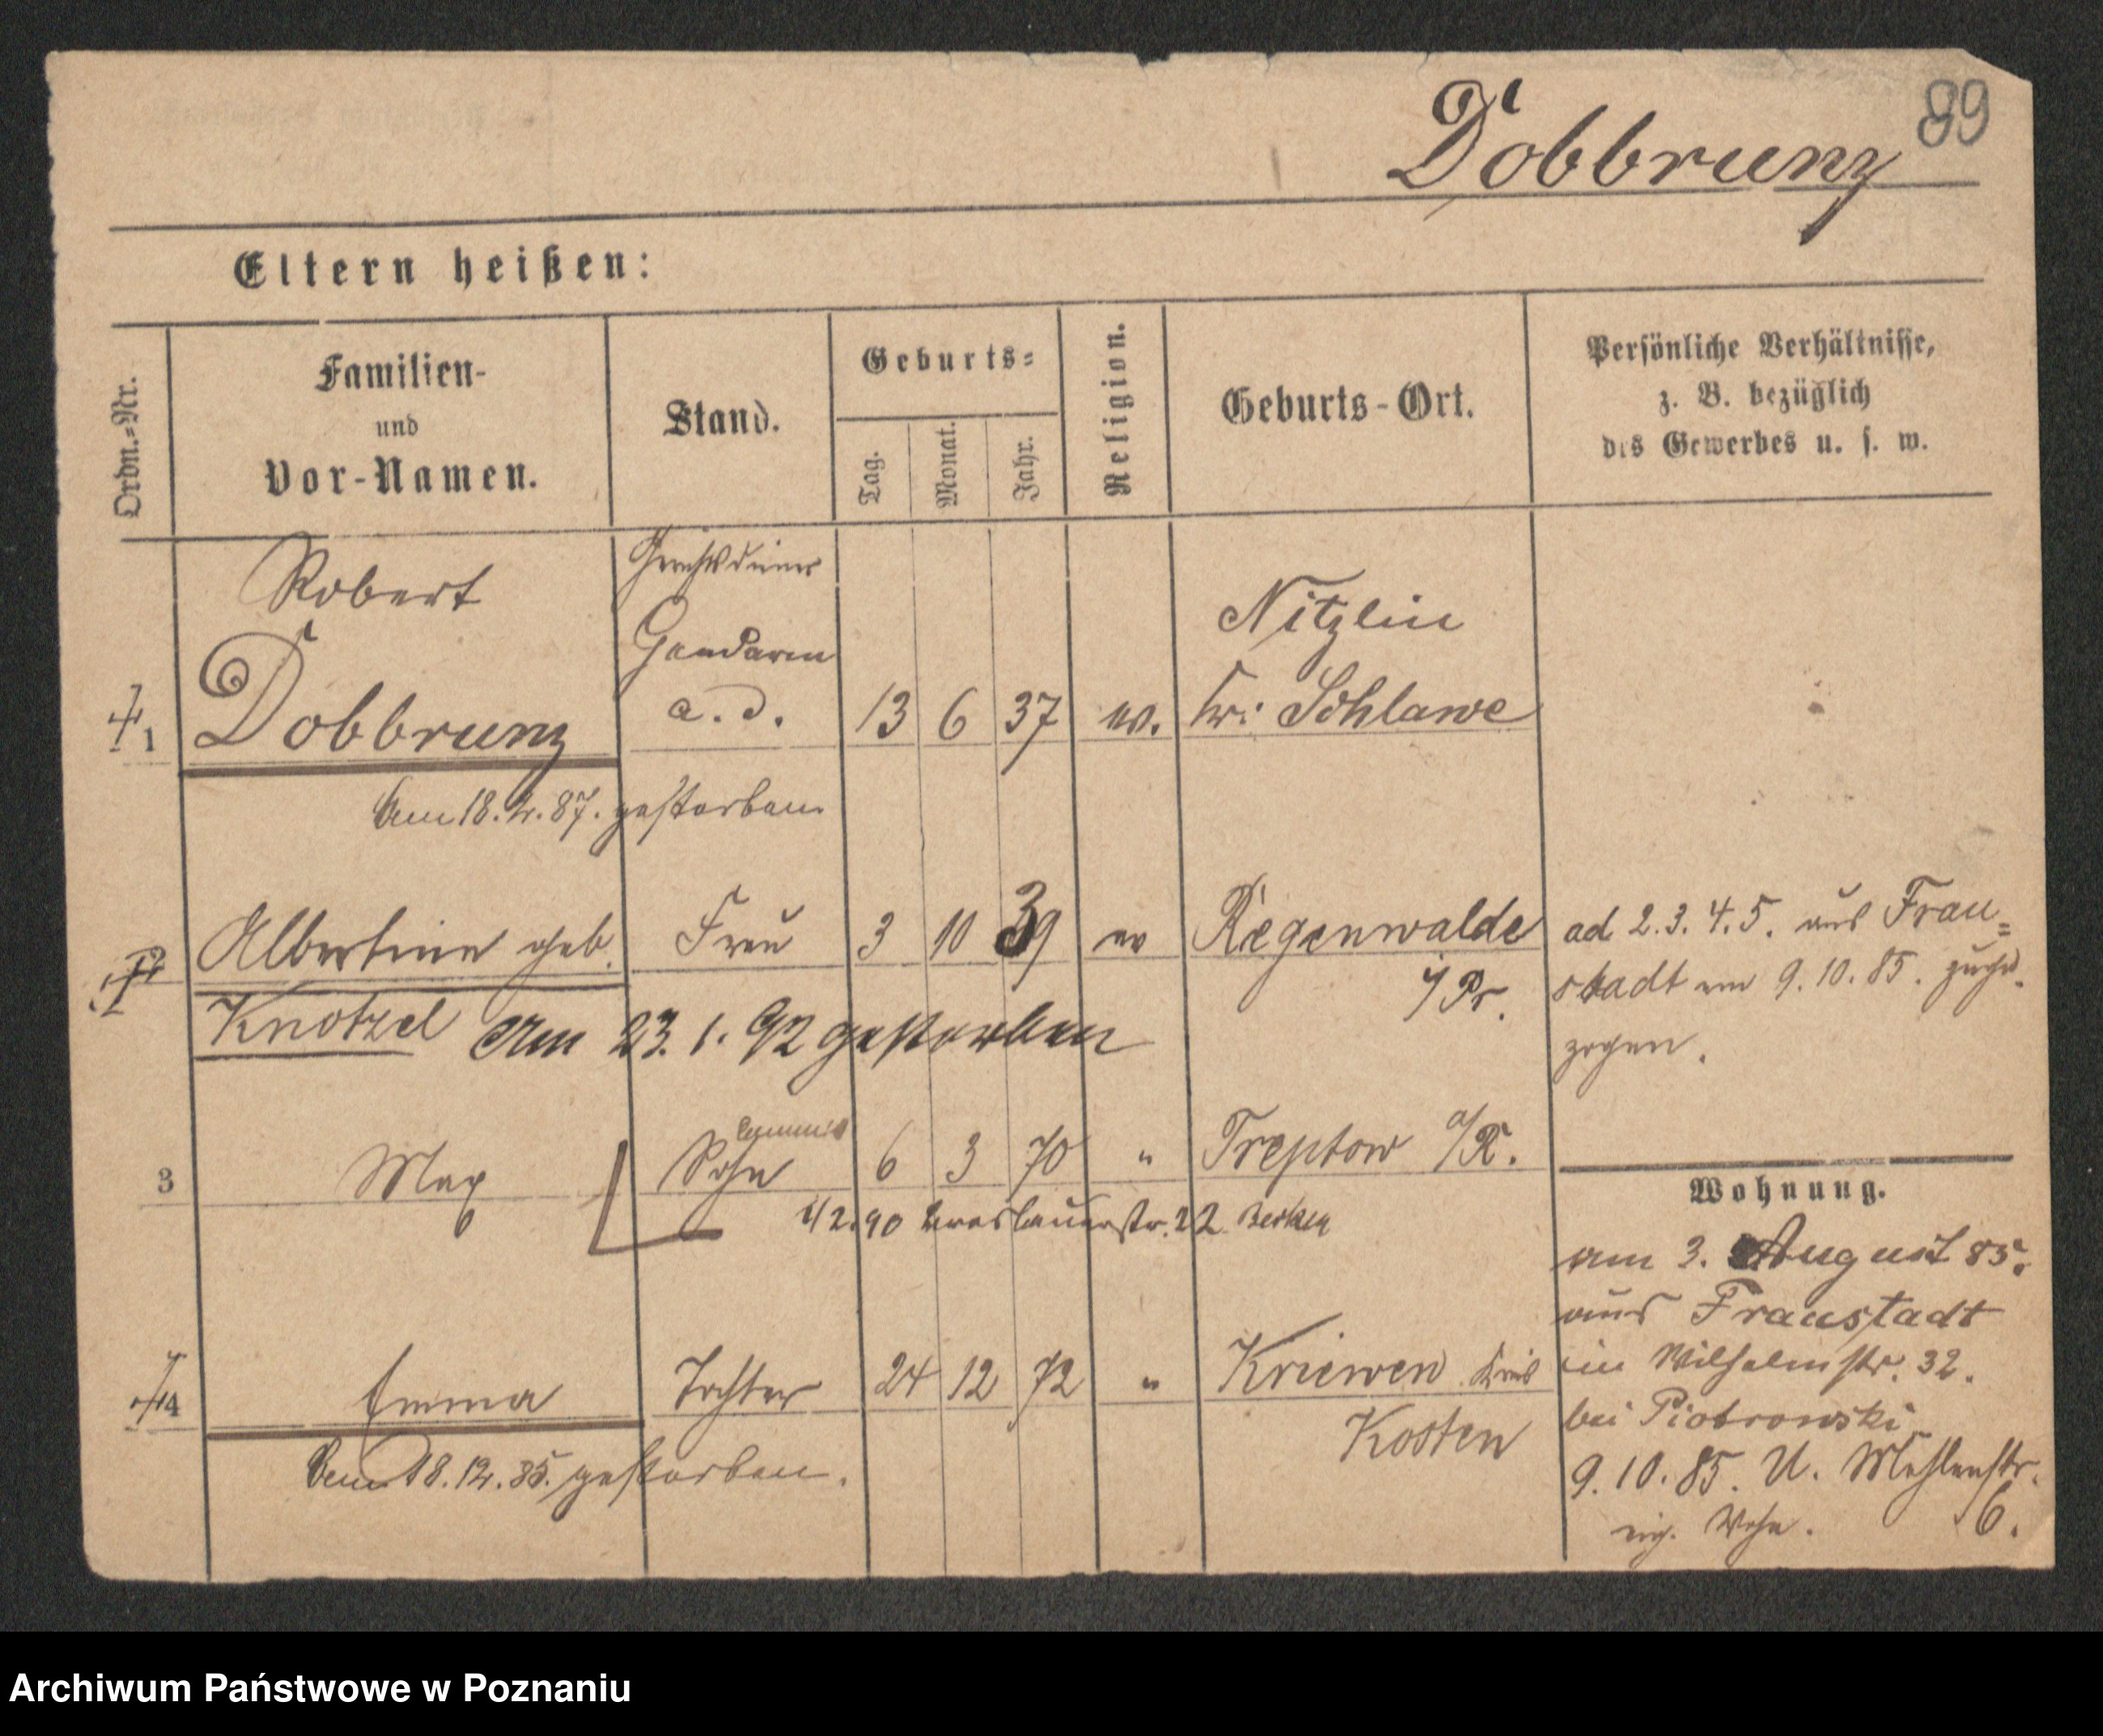 89
Dobbrunz
Eltern heißen:
Ordn.-Nr.
Familien-
und
Vor-Namen.
Stand.
Geburts-
Tag.
Monat.
Jahr.
Religion.
Geburts-Ort.
Persönliche Verhältnisse,
z. B. bezüglich
des Gewerbes u. s. w.
Gerichtsdiener
Robert
Gendarm
Nitzlin
1 Dobbrunz a. D. 13 6 37 ev. Kr: Schlawe
Am 18. 2. 87. gestorben
2 Albertine geb. Frau 3 10 39 ev Regenwalde
i/Pr.
Knotzel Am 23. 1. 92 gestorben
ad 2. 3. 4. 5. aus Frau=
stadt am 9. 10. 85. zuge-
zogen.
Commis
3 Max Sohn 6 3 70 " Treptow a/R.
1/2. 90 Breslauerstr. 22
4 Emma Tochter 24 12 72 " Kriewen Kreis
Kosten
Am 18. 12. 85. gestorben.
Wohnung.
am 3. August 85.
aus Fraustadt
in Wilhelmstr. 32.
bei Piotrowski
9. 10. 85. U. Mühlenstr.
eig. Wohn. 6.
Archiwum Państwowe w Poznaniu